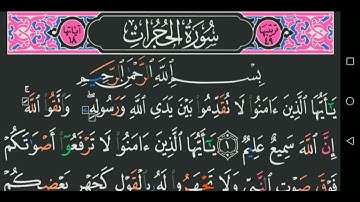 ترتيبها ٤٩ سُورَةُ الحُجُرَاتِ آياتها ١٨
بِسْمِ اللَّهِ الرَّحْمَٰنِ الرَّحِيمِ
يَٰٓأَيُّهَا الَّذِينَ ءَامَنُوا۟ لَا تُقَدِّمُوا۟ بَيْنَ يَدَىِ اللَّهِ وَرَسُولِهِۦ ۖ وَاتَّقُوا۟ اللَّهَ ۚ
إِنَّ اللَّهَ سَمِيعٌ عَلِيمٌ ١ يَٰٓأَيُّهَا الَّذِينَ ءَامَنُوا۟ لَا تَرْفَعُوٓا۟ أَصْوَٰتَكُمْ
فَوْقَ صَوْتِ النَّبِىِّ وَلَا تَجْهَرُوا۟ لَهُۥ بِالْقَوْلِ كَجَهْرِ بَعْضِكُمْ